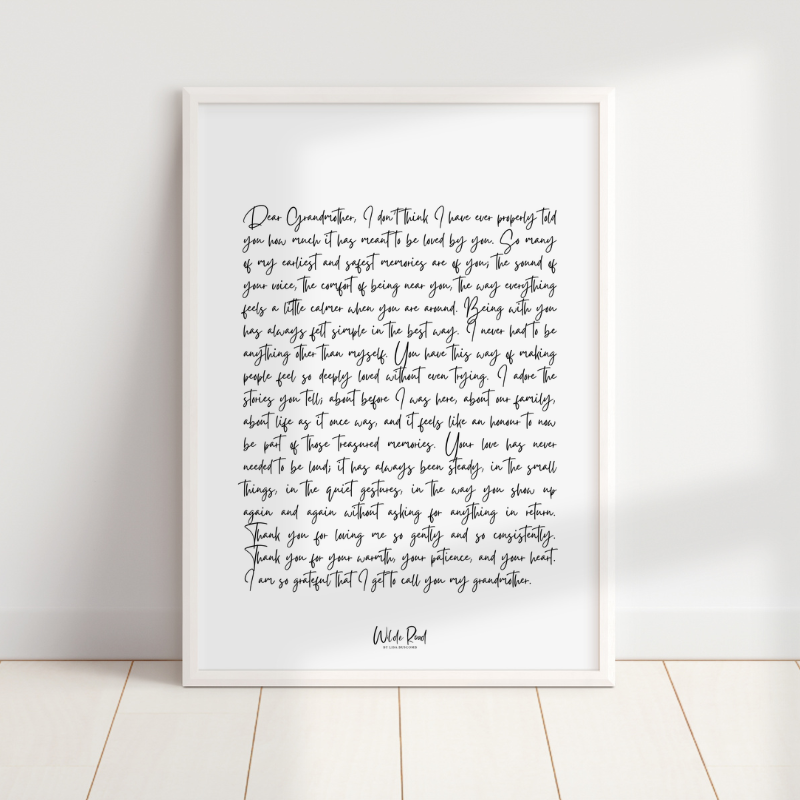 Dear Grandmother, I don't think I have ever properly told
you how much it has meant to be loved by you. So many
of my earliest and safest memories are of you; the sound of
your voice, the comfort of being near you, the way everything
feels a little calmer when you are around. Being with you
has always felt simple in the best way. I never had to be
anything other than myself. You have this way of making
people feel so deeply loved without even trying. I adore the
stories you tell; about before I was here, about our family,
about life as it once was, and it feels like an honour to now
be part of those treasured memories. Your love has never
needed to be loud; it has always been steady, in the small
things, in the quiet gestures, in the way you show up
again and again without asking for anything in return.
Thank you for loving me so gently and so consistently.
Thank you for your warmth, your patience, and your heart.
I am so grateful that I get to call you my grandmother.
Wilde Road